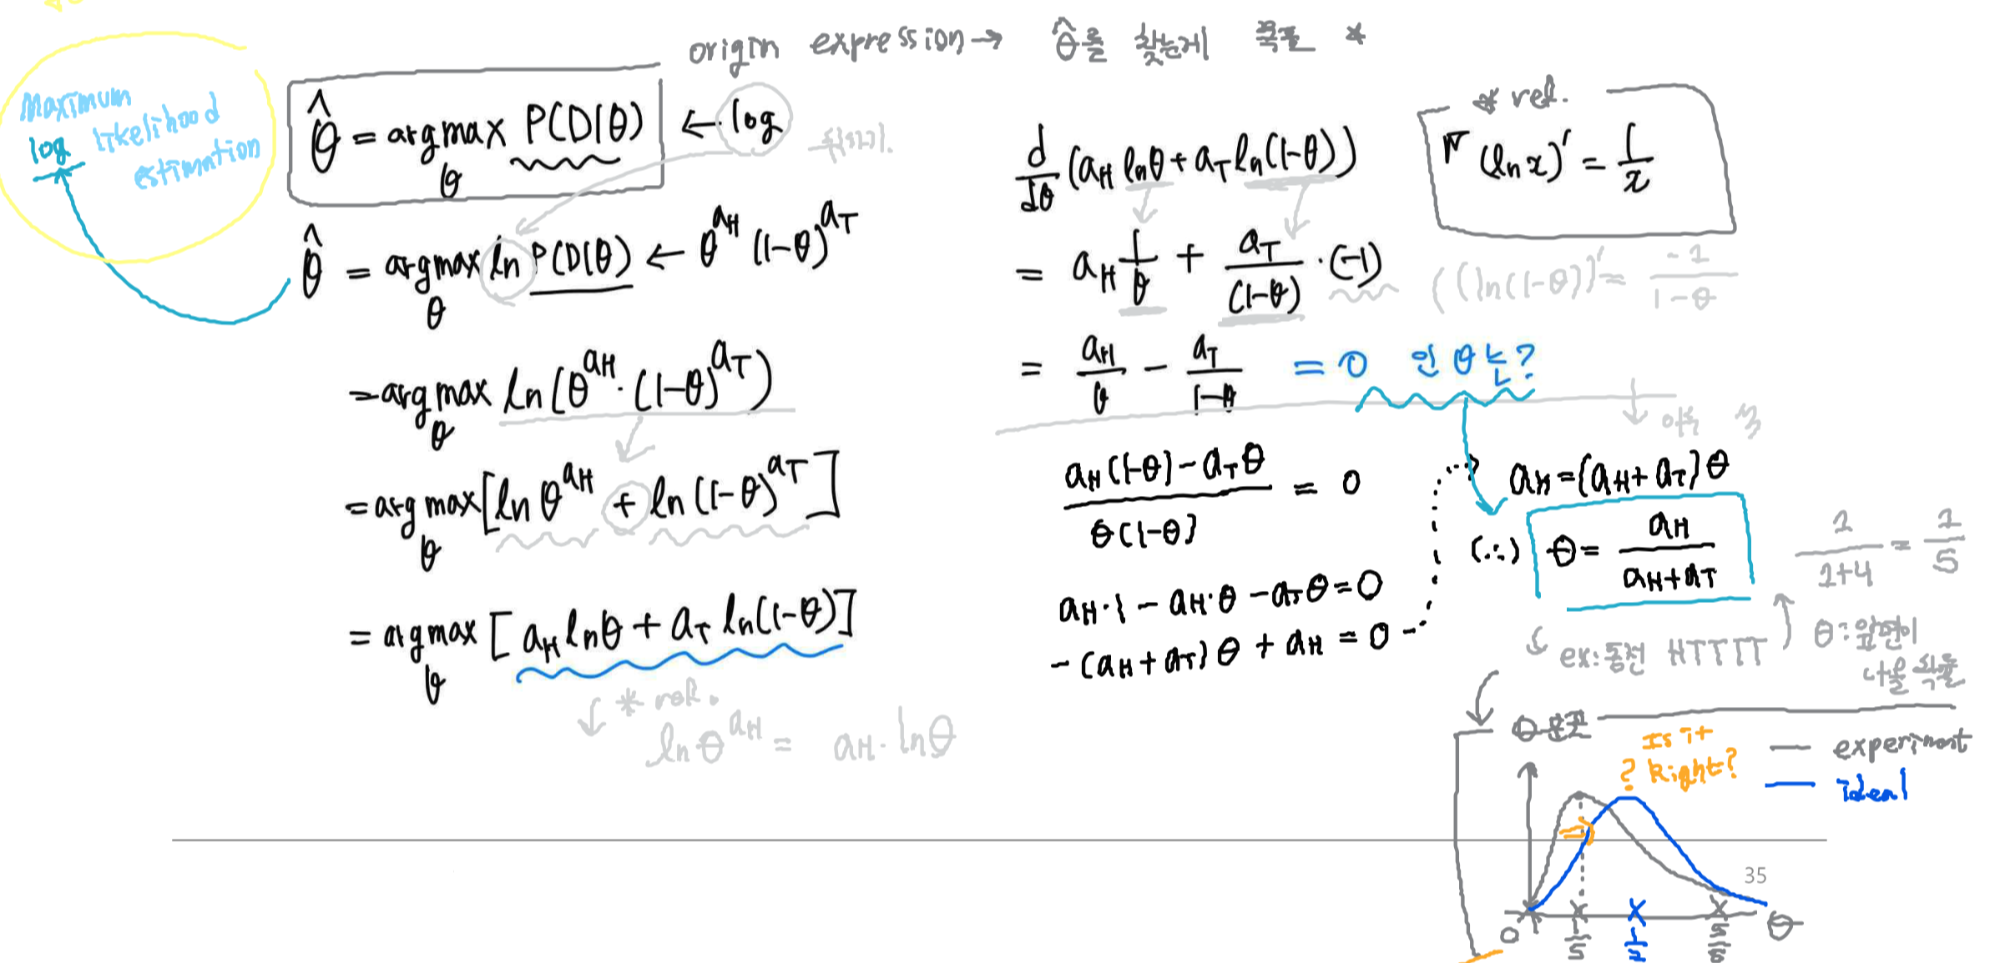 origin expression → θ̂를 찾는게 목표 *
Maximum
log likelihood
estimation
θ̂ = argmax P(D|θ) ← log
θ
θ̂ = argmax ln P(D|θ) ← θ^aH (1-θ)^aT
θ
= argmax ln(θ^aH · (1-θ)^aT)
θ
= argmax [ln θ^aH + ln (1-θ)^aT]
θ
= argmax [aH lnθ + aT ln(1-θ)]
θ
* ref.
ln θ^aH = aH · lnθ
d/dθ (aH lnθ + aT ln(1-θ))
= aH 1/θ + aT/(1-θ) · (-1)
= aH/θ - aT/1-θ = 0 인 θ는?
* ref.
(ln x)' = 1/x
((ln(1-θ))' = -1/1-θ
(aH(1-θ) - aTθ)/θ(1-θ) = 0
aH·1 - aH·θ - aTθ = 0
-(aH+aT)θ + aH = 0
aH = (aH+aT)θ
(∴) θ = aH/aH+aT
1/1+4 = 1/5
ex: 동전 HTTTT
θ: 앞면이
나올 확률
θ 분포
Is it
? Right?
experiment
ideal
0 1/5 1/2 5/5 θ
35